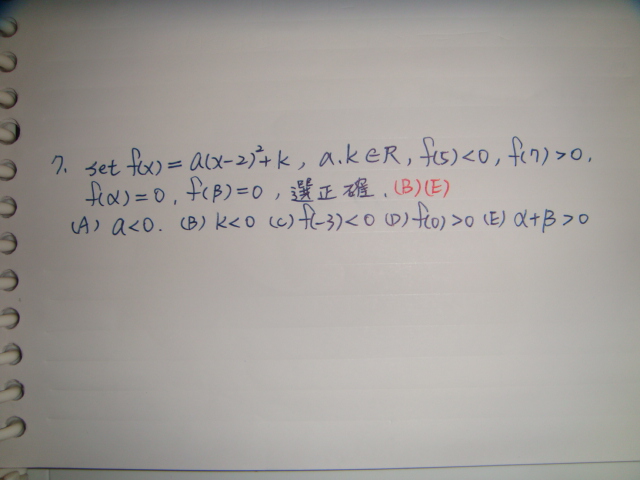 7. set f(x) = a(x-2)²+k, a.k∈R, f(5)<0, f(7)>0.
f(α)=0, f(β)=0, 選正確. (B)(E)
(A) a<0. (B) k<0 (C) f(-3)<0 (D) f(0)>0 (E) α+β>0